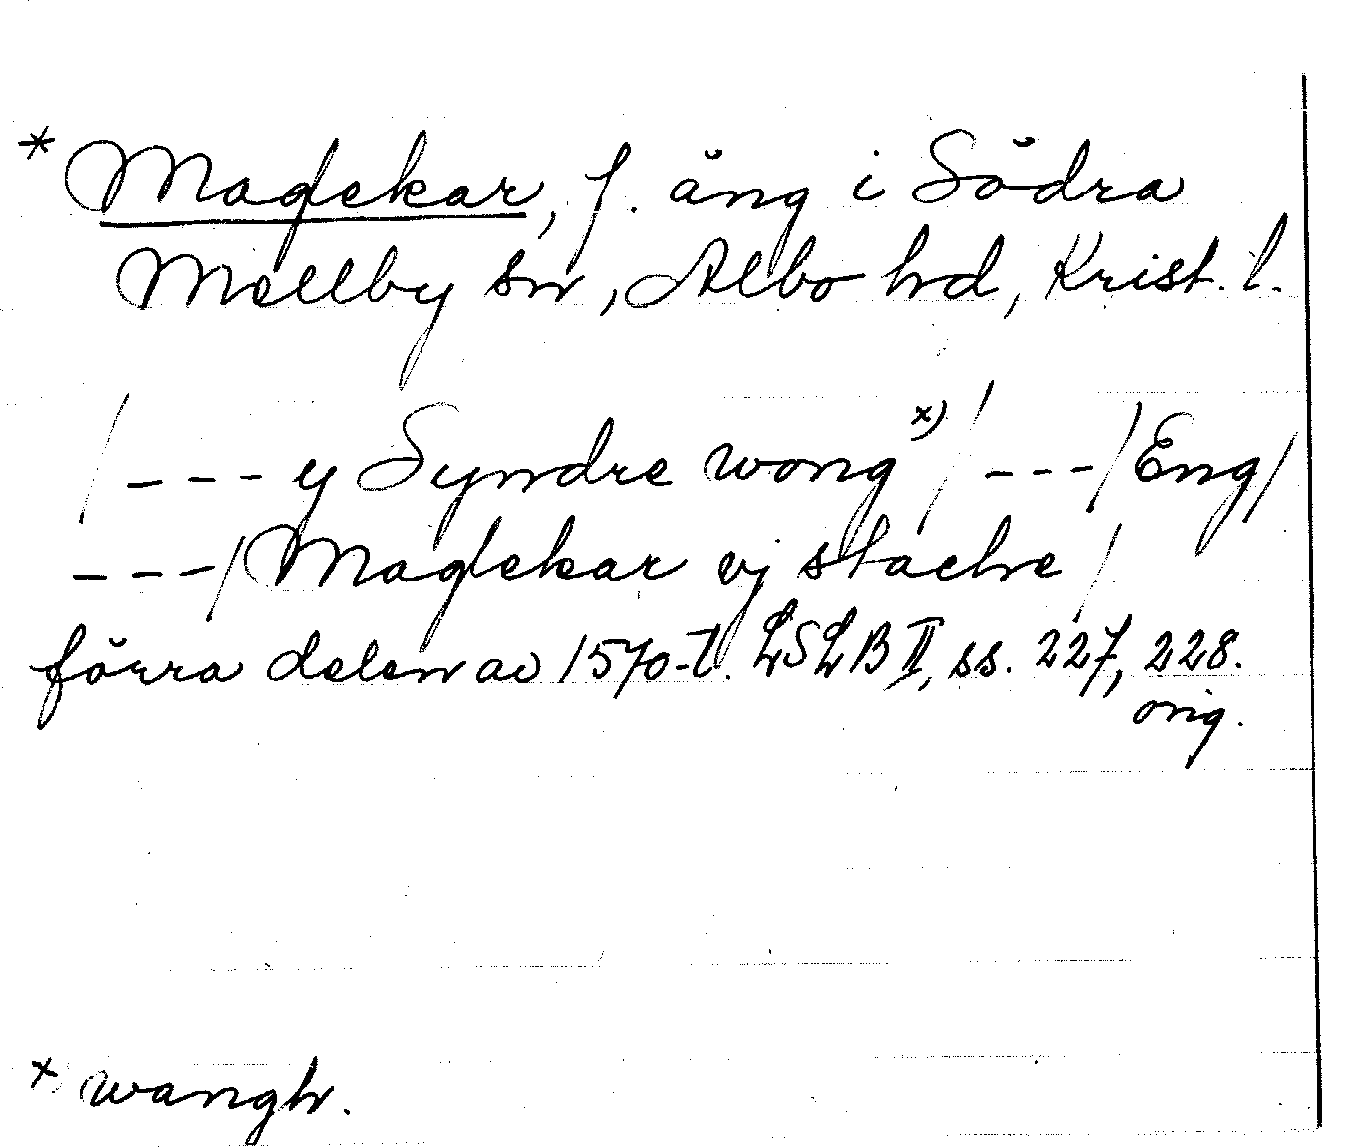 * Maglekar, f. äng i Södra
Mellby sn, Albo hd, Krist. l.
/ - - - y Syndre wong x) / - - - / Eng /
- - - / Maglekar vj stache /
förra delen av 1570-t. LSLB II, ss. 227, 228.
orig.
x wangh.